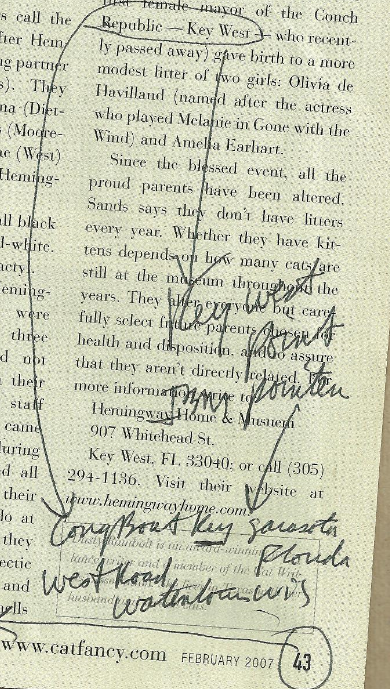 s call the
fter Hem-
ng partner
s). They
na (Diet-
s (Moore-
ne (West)
Heming-
all black
l-white.
acty
eming-
were
three
d not
their
staff
came
during
d all
their
lo at
they
ectic
and
ells
first female mayor of the Conch
Republic — Key West — who recent-
ly passed away) gave birth to a more
modest litter of two girls: Olivia de
Havilland (named after the actress
who played Melanie in Gone with the
Wind) and Amelia Earhart.
Since the blessed event, all the
proud parents have been altered.
Sands says they don't have litters
every year. Whether they have kit-
tens depends on how many cats are
still at the museum throughout the
years. They alter everyone but care-
fully select future parents
health and disposition, and to assure
that they aren't directly related. For
more information, write to
Hemingway Home & Museum
907 Whitehead St.
Key West, FL 33040; or call (305)
294-1136. Visit their website at
www.hemingwayhome.com.
Key West
point
pointen
Long Boat Key Sarasota
Florida
West Road
Waterloo Wis
is an award-winning
and a member of the Cat Writ-
www.catfancy.com FEBRUARY 2007 43